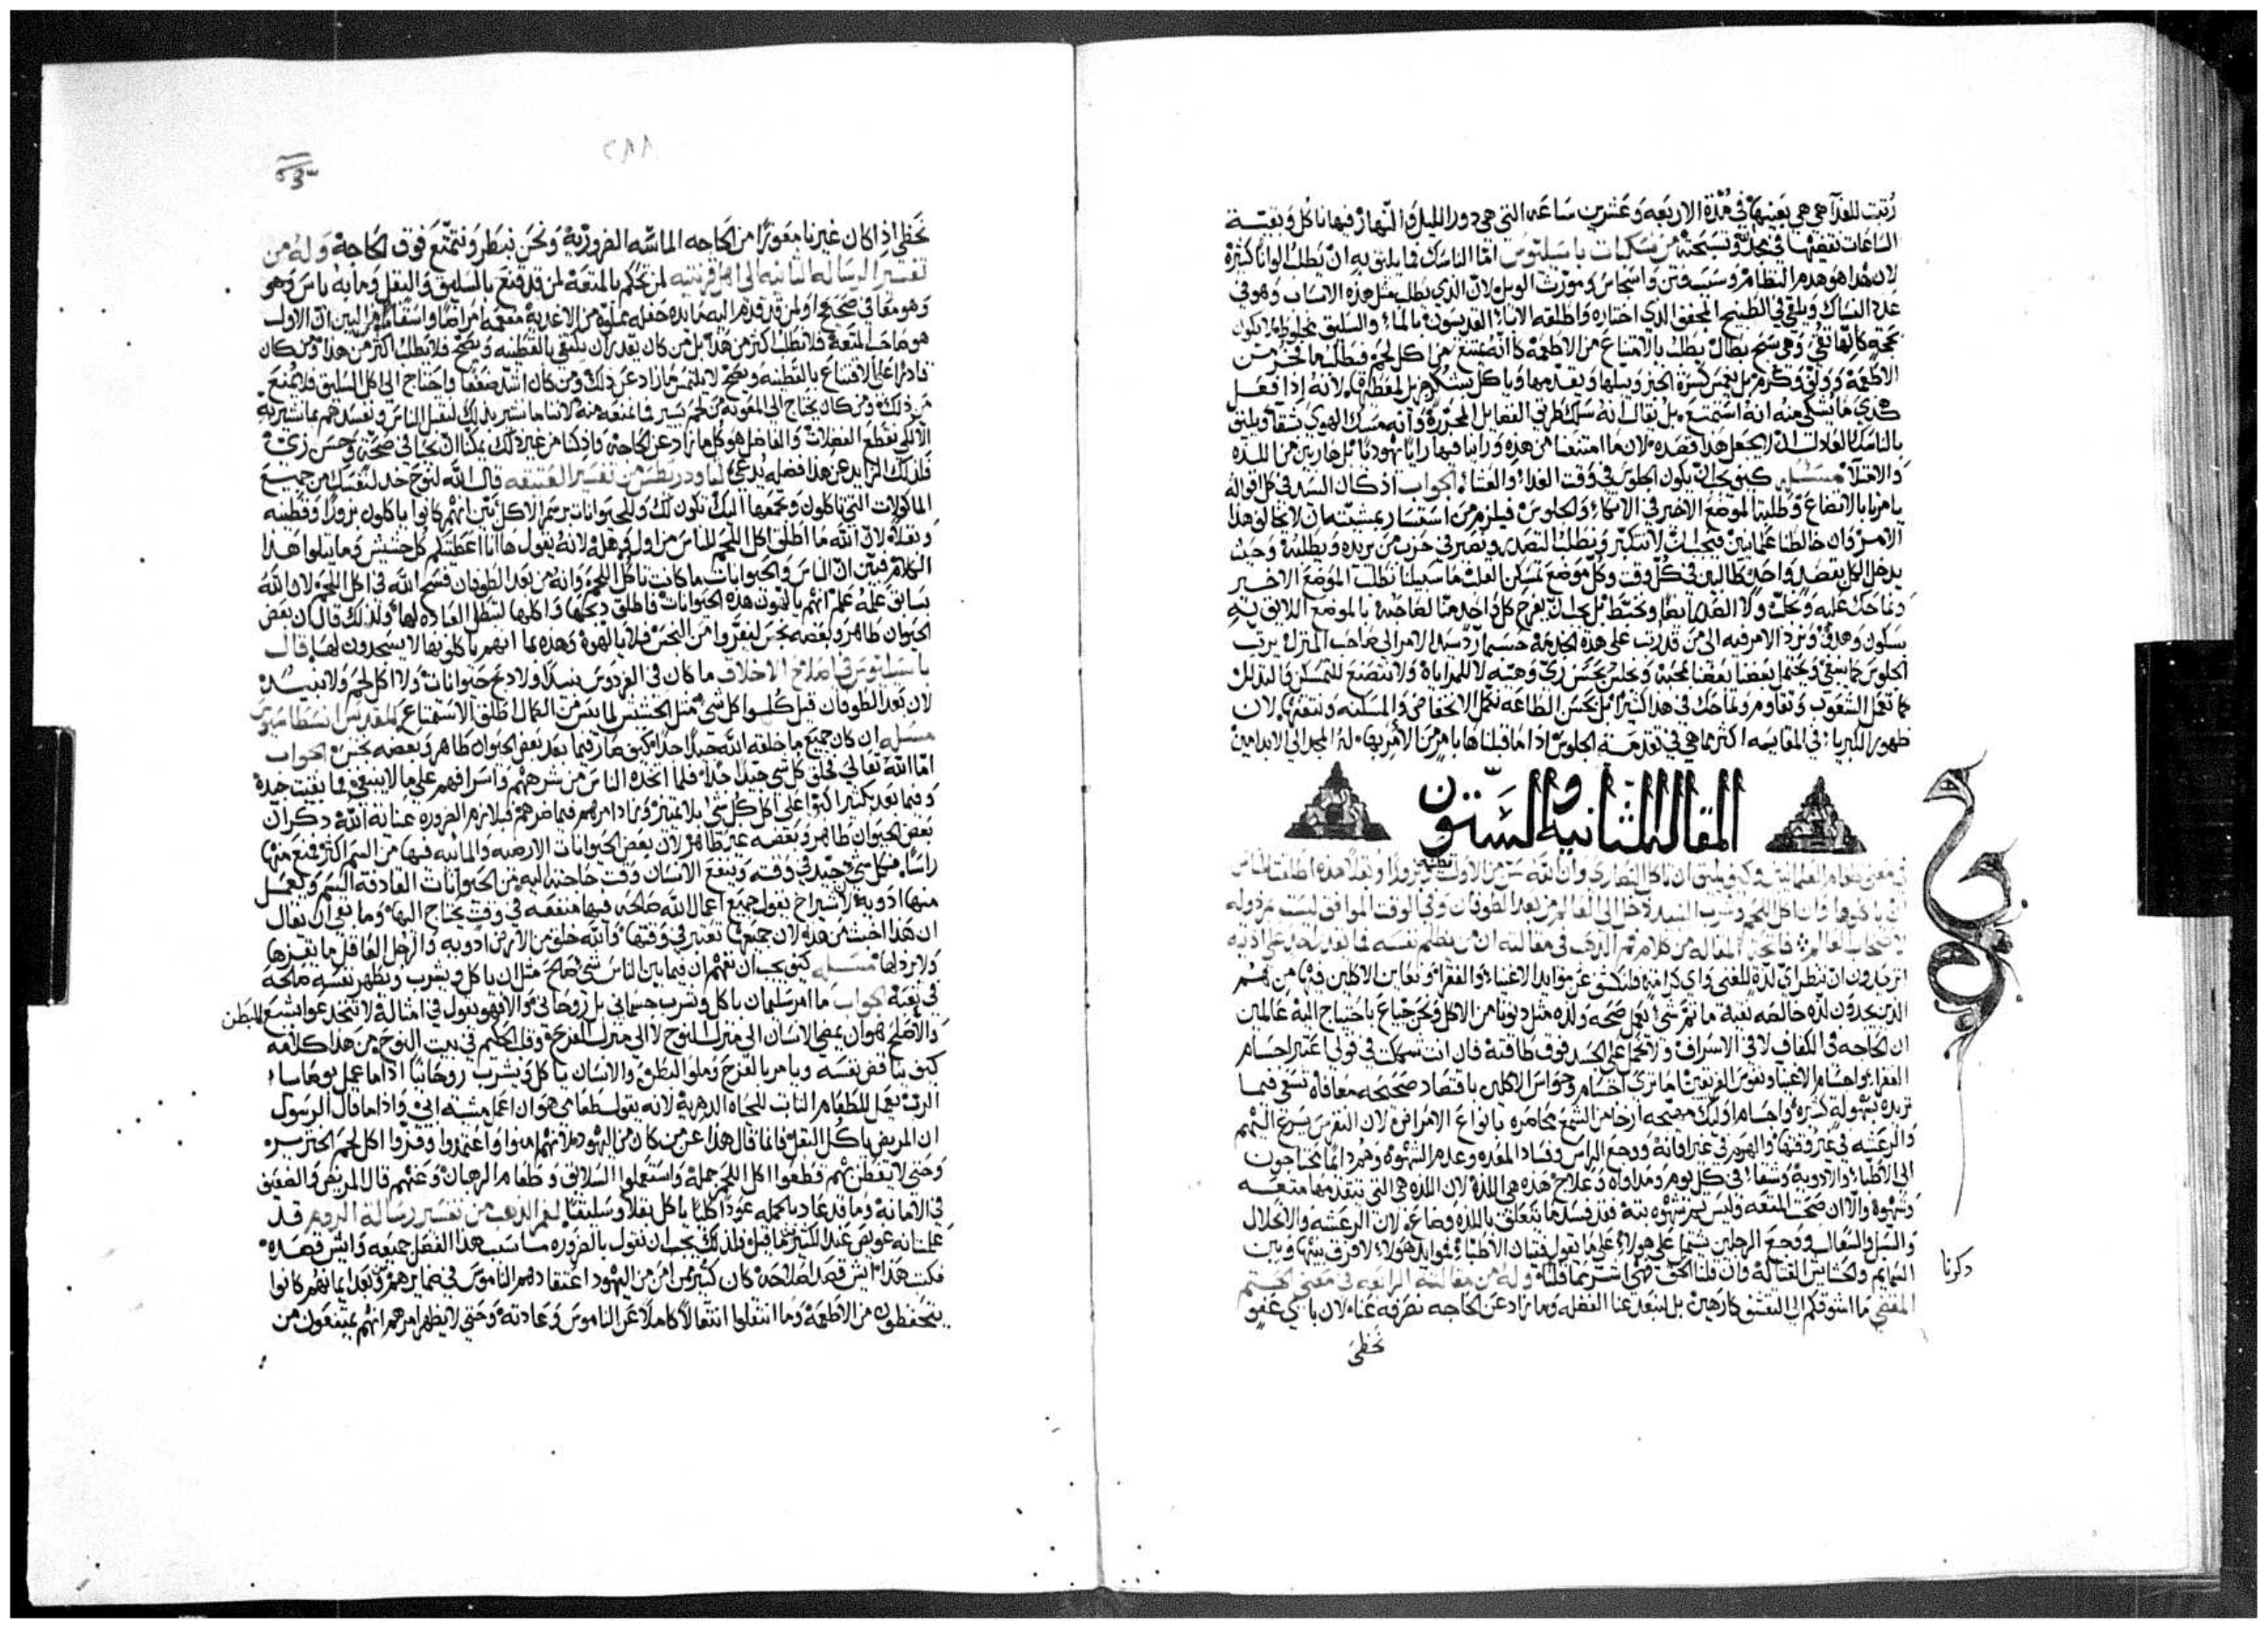 رتبت للغدآ هي هي بعينها في مدة الاربعه وعشرين ساعه التي هي دور الليل والنهار فيها ناكل وبقيـة
الساعات نقضيها في مجد الله وتسبحته من نسكيات باسيليوس امّا الناسك فما يليق به ان يطلب الوانا كثيرة
لان هذا هو هدم النظام
عدد النساك ويلقي في الطبيخ المجفف الذي اختاره واطلقه الابآ القديسون بالمآء والسليق
كمن كل لحم
الاطعمة
هدي ما يشكى منه انه استمتع بل يقال انه سلك طريق الفضايل المحررة وانه مسك الهوي
بالناسك
والامتلآ مسـله كيف يجب ان يكون الجلوس في وقت الغدآء والعشآء الجواب اذ كان السيد في كل اقواله
يامرنا بالاتضاع وطلب الموضع الاخير في الاتكآء والجلوس فيلزم من استسار بمشيئته ان لا يخالف هذا
الامر وان خالطنا علمانيين فيجب ان لا نتكبر ونطلب التصدر
يدخل الكل بقصد واحد طالبين في كل وقت وكل موضع تمسكن القلب ما سبيلنا نطلب الموضع الاخير
بل يجب ان يفرح كل واحد منا لصاحبه بالموضع اللايق به
بسكون وهدؤ ونرد الامر فيه الى من قد رتب على هذه الخدمة حسبما رد سيدنا الامر الى صاحب المنزل يرتب
الجلوس كما ينبغي ونحتمل بعضنا بعضا بمحبة ونجلس بحسن زي وهيئه لا للمراياة ولا نتصنع للتمسكن والتذلل
بل بحسن الطاعه نكمل الانخفاض والمسكنه ونقتنيها لان
ظهور الكبريآء في المقايسه اكثر مما هي في تقدمة الجلوس اذا ما قبلناها بامر من الآمر بها له المجد الي الابد امين
المقالة الثانية والستون
في معنى طعام العلمانيين وكيف يليق ان ياكل النصارى وان الله من الاول بزورا وبقلا هذه اطلقت للناس
ان ياكلوها وان اكل اللحم وشرب النبيد دخل الى العالم من بعد الطوفان وفي الوقت الموافق ليست مرذوله
لاصحاب العالم فاتحة المقاله من كلام فم الذهب في مقالته ان من لم يظلم نفسه فما يقدر احد على اذيته
اتريدون ان ننظر اي لذة للغني واي كرامه فلنكشف عن موايد الاغنيآء والفقرآء ونعاين الاكلين فيها من هم
الذين يجدون لذه خالصه نقية ما ثم شي يعمل صحه ولذه مثل دنونا من الاكل ونحن جياع باحتياج اليه عالمين
ان الحاجه في الكفاف لا في الاسراف ولا نحمل على الجسد فوق طاقته فان انت شككت في قولي اعتبر اجسام
الفقرآء واجسام الاغنيآء ونفوس الفريقين اما ترى اجسام وحواس الاكلين باقتصاد صحيحه معافاة تسعي فيما
تريده بسهولة كثيرة واجسام اوليك مخامره بانواع الامراض لان النقرس يسرع اليهم
والرعشه في غير وقتها والهرم في غير اوانه ووجع الراس وفساد المعده وعدم الشهوة وهم دايما يحتاجون
الى الاطبآء والادوية وشفآء في كل يوم ومداواه وعلاج هذه هي اللذة لان اللذه هي التي تتقدمها متعه
وشهوة والآ ان صحت المتعه وليس ثم شهوه بتة فقد فسد ما يتعلق باللذه وضاع لان الرعشه والانحلال
والسل والسعال ووجع الرجلين
السمايم والحشايش القتالة وان قلنا الحق فهي اشر مما قلنا وله من مقالته الرابعه في معنى
المقتنى ما اشوقكم الي التقشف كارهين بل لنبعد عنا الفضله وما زاد عن الحاجه نصرفه عنا لان باي عفو
نحظي
ذكرنا
٢٨٨
نحظى اذا كان غيرنا معوزا من الحاجه الماسّه الضروريّة ونحن نبطر ونتمتع فوق الحاجة وله من
تفسير الرساله الثانيه الى اهل قرنتيه لمن نحكم بالمتعة لمن قد قنع بالسليق والبقل وما به باس وهو
وهو معافا في صحيح او لمن قد قدم اليه مايده حفله مملوه من الاغديه مفعمه امراضا واسقاما من البين ان الاول
هو صاحب المتعة فلا نطلب اكثر من هذا بل من كان يقدر ان يكتفي بالقطنيه ويصح فلا يطلب اكثر من هذا ومن كان
قادرا على الاقتناع بالقطنيه ويصح لا يلتمس ما زاد عن ذلك ومن كان اشد ضعفا واحتاج الى اكل السليق فلا يمنع
من ذلك ومن كان يحتاج الى المعونة من لحم يسير فما نمنعه منه لاننا ما نشير بذلك لنقتل الناس ونفسدهم بما نشير به
الا لكي نقطع الفضلات والفاضل هو كل ما زاد عن الحاجه واذ كنا من غير ذلك يمكننا ان نحيا في صحة وحسن زي
فلذلك الزايد عن هذا فضله يدعى لثاودريطس من تفسير العتيقه قال الله لنوح خد لنفسك من جميع
الماكولات التي تاكلون وتجمعها اليك تكون لك وللحيوانات برسم الاكل بين انهم كانوا ياكلون بزورا وقطنيه
وبقلا لان الله ما اطلق اكل اللحم للناس من اول وهله لانه يقول ها انا اعطيتكم كل حشيش وما يتلوا هـذا
الكلام فبين ان الناس والحيوانات ما كانت تاكل اللحم وانه من بعد الطوفان فسح الله في اكل اللحم لان الله
بسابق علمه علم انهم يالهون هذه الحيوانات فاطلق ذبحها واكلها لتبطل العباده لها ولذلك قال ان بعض
الحيوان طاهر وبعضه نجس ليفروا من النجس فلا يالهوه وهذه لما انهم ياكلونها لا يسجدون لها قال
باسيليوس في اصلاح الاخلاق ما كان في الفردوس نبيذ ولا ذبح حيوانات ولا اكل لحم ولا نبيـذ
لان بعد الطوفان قيل كلـوا كل شي مثل الحشيش لما يئس من الكمال اطلق الاستمتاع للقديس انسطاسيوس
مسـله ان كان جميع ما خلقه الله جيدا جدا كيف صار فيما بعد بعض الحيوان طاهر وبعضه نجس الجواب
امّا الله تعالى فخلق كل شي جيدا جدا فلما اتخده الناس من شرههم واسرافهم على ما لا ينبغي فما بقيت جيدة
وفيما بعد بكثير
بعض الحيوان طاهر وبعضه غير طاهر لان بعض الحيوانات الارضيه والمائيه فيها من السم اكثر فمنع منها
راسا فكل شي جيد في وقته وينفع الانسان وقت حاجته اليه من الحيوانات القاذفة السم ويعمل
منها ادوية لان سيراخ يقول جميع اعمال الله صالحه فيها منفعه في وقت يحتاج اليها وما بقي ان يقال
ان هذا اخبث من هذا لان جميعها تعتبر في وقتها والله خلق من الارض ادويه والرجل العاقل ما يقدرها
ولا يردلها مسـله كيف يجب ان نفهم ان فيما بين الناس شي صالح مثل ان ياكل ويشرب ويظهر نفسه صالحة
في تعبة جواب ما امر سليمان باكل وشرب جسماني بل روحاني والا فهو يقول في امثاله لا تنخدعوا بشبع للبطن
والاصلح هو ان يمضي الانسان الى منزل النوح لا الى منزل الفرح وقلب الحكيم في بيت النوح من هذا كلامه
كيف يناقض نفسه ويامر بالفرح وملو البطن والانسان ياكل ويشرب روحانيا اذا ما عمل بوصايا
الربّ بعمل للطعام الثابت للحياة الدهرية لانه يقول طعامي هو ان اعمل مشيئه ابي واذا ما قال الرسول
ان المريض ياكل البقل فانما قال هذا عن من كان من اليهود لانهم امنوا واعتمدوا وفروا اكل لحم الخنزير
وحتى لا يفطن بهم قطعوا اكل اللحم جمله واستعملوا السلايق وطعام الرهبان وعنهم قال المريض والضعيف
في الامانة وما قد عاد بالجمله عودا كليا ياكل بقلا وسليقا لفم الذهب من تفسير رسالة الروم قـد
علمنا انه عويص عند الكثير ما قيل فلذلك يجب ان نقول بالضروره ما سبب هذا الفصل جميعه وايش قصـده
فكتب هذا ايش قصد اصلاحه كان كثير ممن امن من اليهود اعتقادهم الناموس في ضمايرهم من بعد ايمانهم كانوا
يتحفظون من الاطعمة وما انتقلوا انتقالا كاملا عن الناموس وعادته وحتى لا يظهر امرهم انهم يمتنعون من